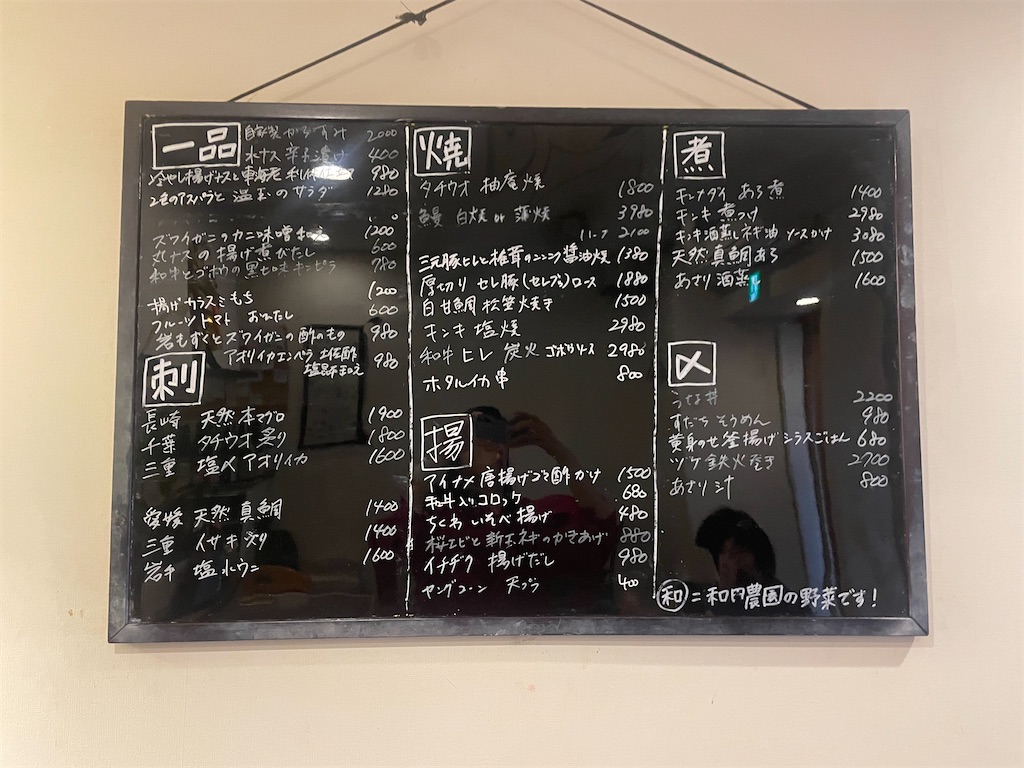 一品
自家製 からすみ 2000
水ナス 辛子漬け 400
冷やし揚げナスと車海老 980
2色のアスパラと 温玉のサラダ 1280
ズワイガニのカニ味噌和え 1200
丸ナスの揚げ煮びたし 600
和牛とゴボウの黒七味キンピラ 980
揚げカラスミもち 1200
フルーツトマト おひたし 600
岩もずくとズワイガニの酢のもの 980
アオリイカエンペラ 土佐酢
塩昆布和え 980
刺
長崎 天然 本マグロ 1900
千葉 タチウオ 炙り 1800
三重 塩〆アオリイカ 1600
愛媛 天然 真鯛 1400
三重 イサキ 炙り 1400
岩手 塩水ウニ 1600
焼
タチウオ 柚庵焼 1800
鰻 白焼 or 蒲焼 3980
ハーフ 2100
三元豚ヒレと椎茸のニンニク醤油焼 1380
厚切り セレ豚(セレブ)ロース 1880
白甘鯛 松笠焼き 1500
キンキ 塩焼 2980
和牛ヒレ 炭火 ゴボウソース 2980
ホタルイカ串 800
揚
アイナメ 唐揚げゴマ酢かけ 1500
和牛入りコロッケ 680
ちくわ いそべ揚げ 480
桜エビと新玉ネギのかきあげ 880
イチヂク 揚げだし 980
ヤングコーン 天プラ 400
煮
キンメダイ あら煮 1400
キンキ 煮つけ 2980
キンキ酒蒸しネギ油 ソースかけ 3080
天然 真鯛 あら 1500
あさり 酒蒸し 1600
〆
うな丼 2200
すだち そうめん 980
黄身のせ釜揚げシラスごはん 680
ヅケ 鉄火巻き 2700
あさり汁 800
和=和田農園の野菜です!